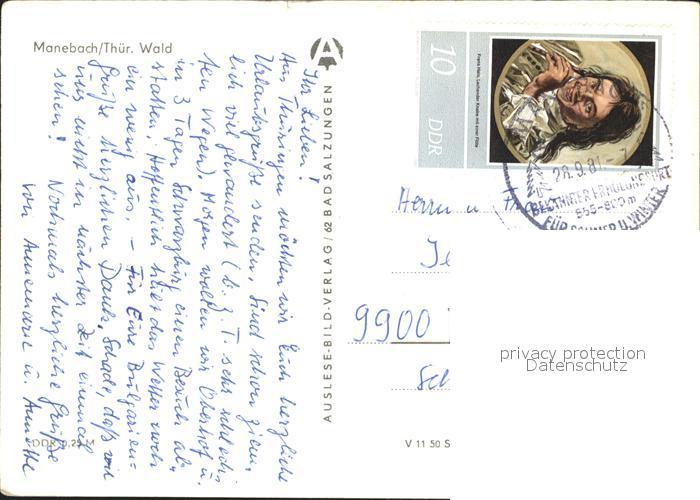 Manebach/Thür. Wald
Ihr Lieben!
Aus Thüringen möchten wir Euch herzliche
Urlaubsgrüße senden. Sind schon ziem-
lich viel gewandert (z. T. sehr schlech-
ten Wegen). Morgen wollen wir Oberhof u.
in 3 Tagen Schwarzburg einen Besuch ab-
statten. Hoffentlich hält das Wetter noch
ein wenig aus. – Für Eure Bulgarien-
grüße herzlichen Dank. Schade, daß wir
uns nicht in nächster Zeit einmal
sehen! Nochmals herzliche Grüße
von Annemarie u. Annette
DDR 0,25 M
AUSLESE-BILD-VERLAG / 62 BAD SALZUNGEN
V 11 50 S
10
DDR
Frans Hals, Lachender Knabe mit einer Flöte
28.9.81
BELIEBTER ERHOLUNGSORT
855-800m
FÜR SOMMER U. WINTER
Herrn u. Fr
9900
privacy protection
Datenschutz